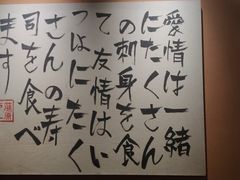 愛情は一緒
にたくさん
の刺身を食
て友情はい
っぱにたく
さんの寿
司を食べ
ます